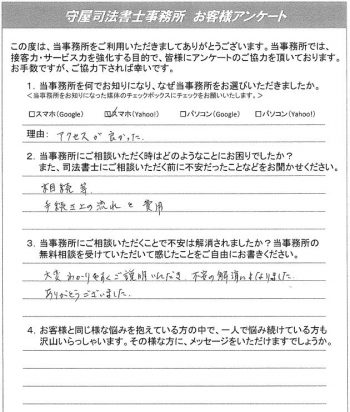 守屋司法書士事務所 お客様アンケート
この度は、当事務所をご利用いただきましてありがとうございます。当事務所では、
接客力・サービス力を強化する目的で、皆様にアンケートのご協力を頂いております。
お手数ですが、ご協力下されば幸いです。
1. 当事務所を何でお知りになり、なぜ当事務所をお選びいただきましたか。
<当事務所をお知りになった媒体のチェックボックスにチェックをお願いします。>
□スマホ(Google) ☑スマホ(Yahoo!) □パソコン(Google) □パソコン(Yahoo!)
理由: アクセスが良かった.
2. 当事務所にご相談いただく時はどのようなことにお困りでしたか?
また、司法書士にご相談いただく前に不安だったことなどをお聞かせください。
相続等
手続き上の流れと費用
3. 当事務所にご相談いただくことで不安は解消されましたか?当事務所の
無料相談を受けていただいて感じたことをご自由にお書きください。
大変わかりやすくご説明いただき、不安の解消になりました.
ありがとうございました.
4. お客様と同じ様な悩みを抱えている方の中で、一人で悩み続けている方も
沢山いらっしゃいます。その様な方に、メッセージをいただけますでしょうか。